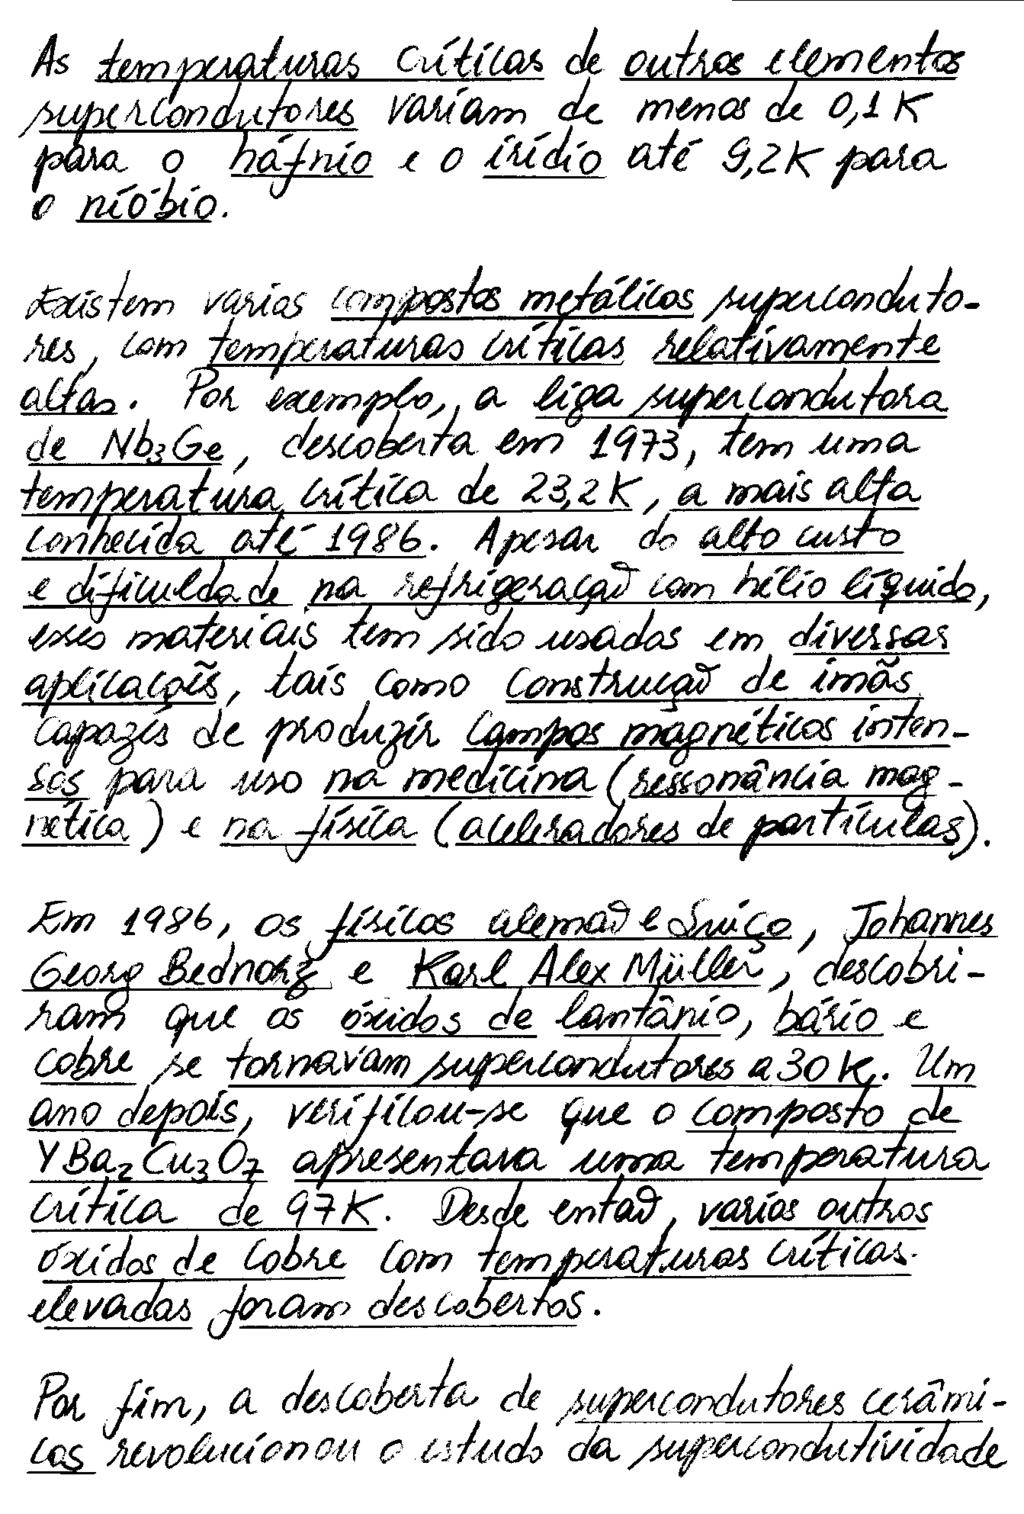 As temperaturas críticas de outros elementos
supercondutores variam de menos de 0,1 K
para o háfnio e o irídio até 9,2K para
o nióbio.
Existem varios compostos metálicos superconduto-
res, com temperaturas críticas relativamente
altas. Por exemplo, a liga supercondutora
de Nb₃Ge, descoberta em 1973, tem uma
temperatura crítica de 23,2K, a mais alta
conhecida até 1986. Apesar do alto custo
e dificuldade na refrigeração com hélio líquido,
esses materiais tem sido usados em diversas
aplicações, tais como construção de imãs
capazes de produzir campos magnéticos inten-
sos para uso na medicina (ressonância mag-
nética) e na física (aceleradores de partículas).
Em 1986, os físicos alemão e Suiço, Johannes
Georg Bednorz e Karl Alex Müller, descobri-
ram que os óxidos de lantânio, bário e
cobre se tornavam supercondutores a 30 K. Um
ano depois, verificou-se que o composto de
YBa₂Cu₃O₇ apresentava uma temperatura
crítica de 97K. Desde então, varios outros
óxidos de cobre com temperaturas críticas
elevadas foram descobertos.
Por fim, a descoberta de supercondutores cerâmi-
cos revolucionou o estudo da supercondutividade